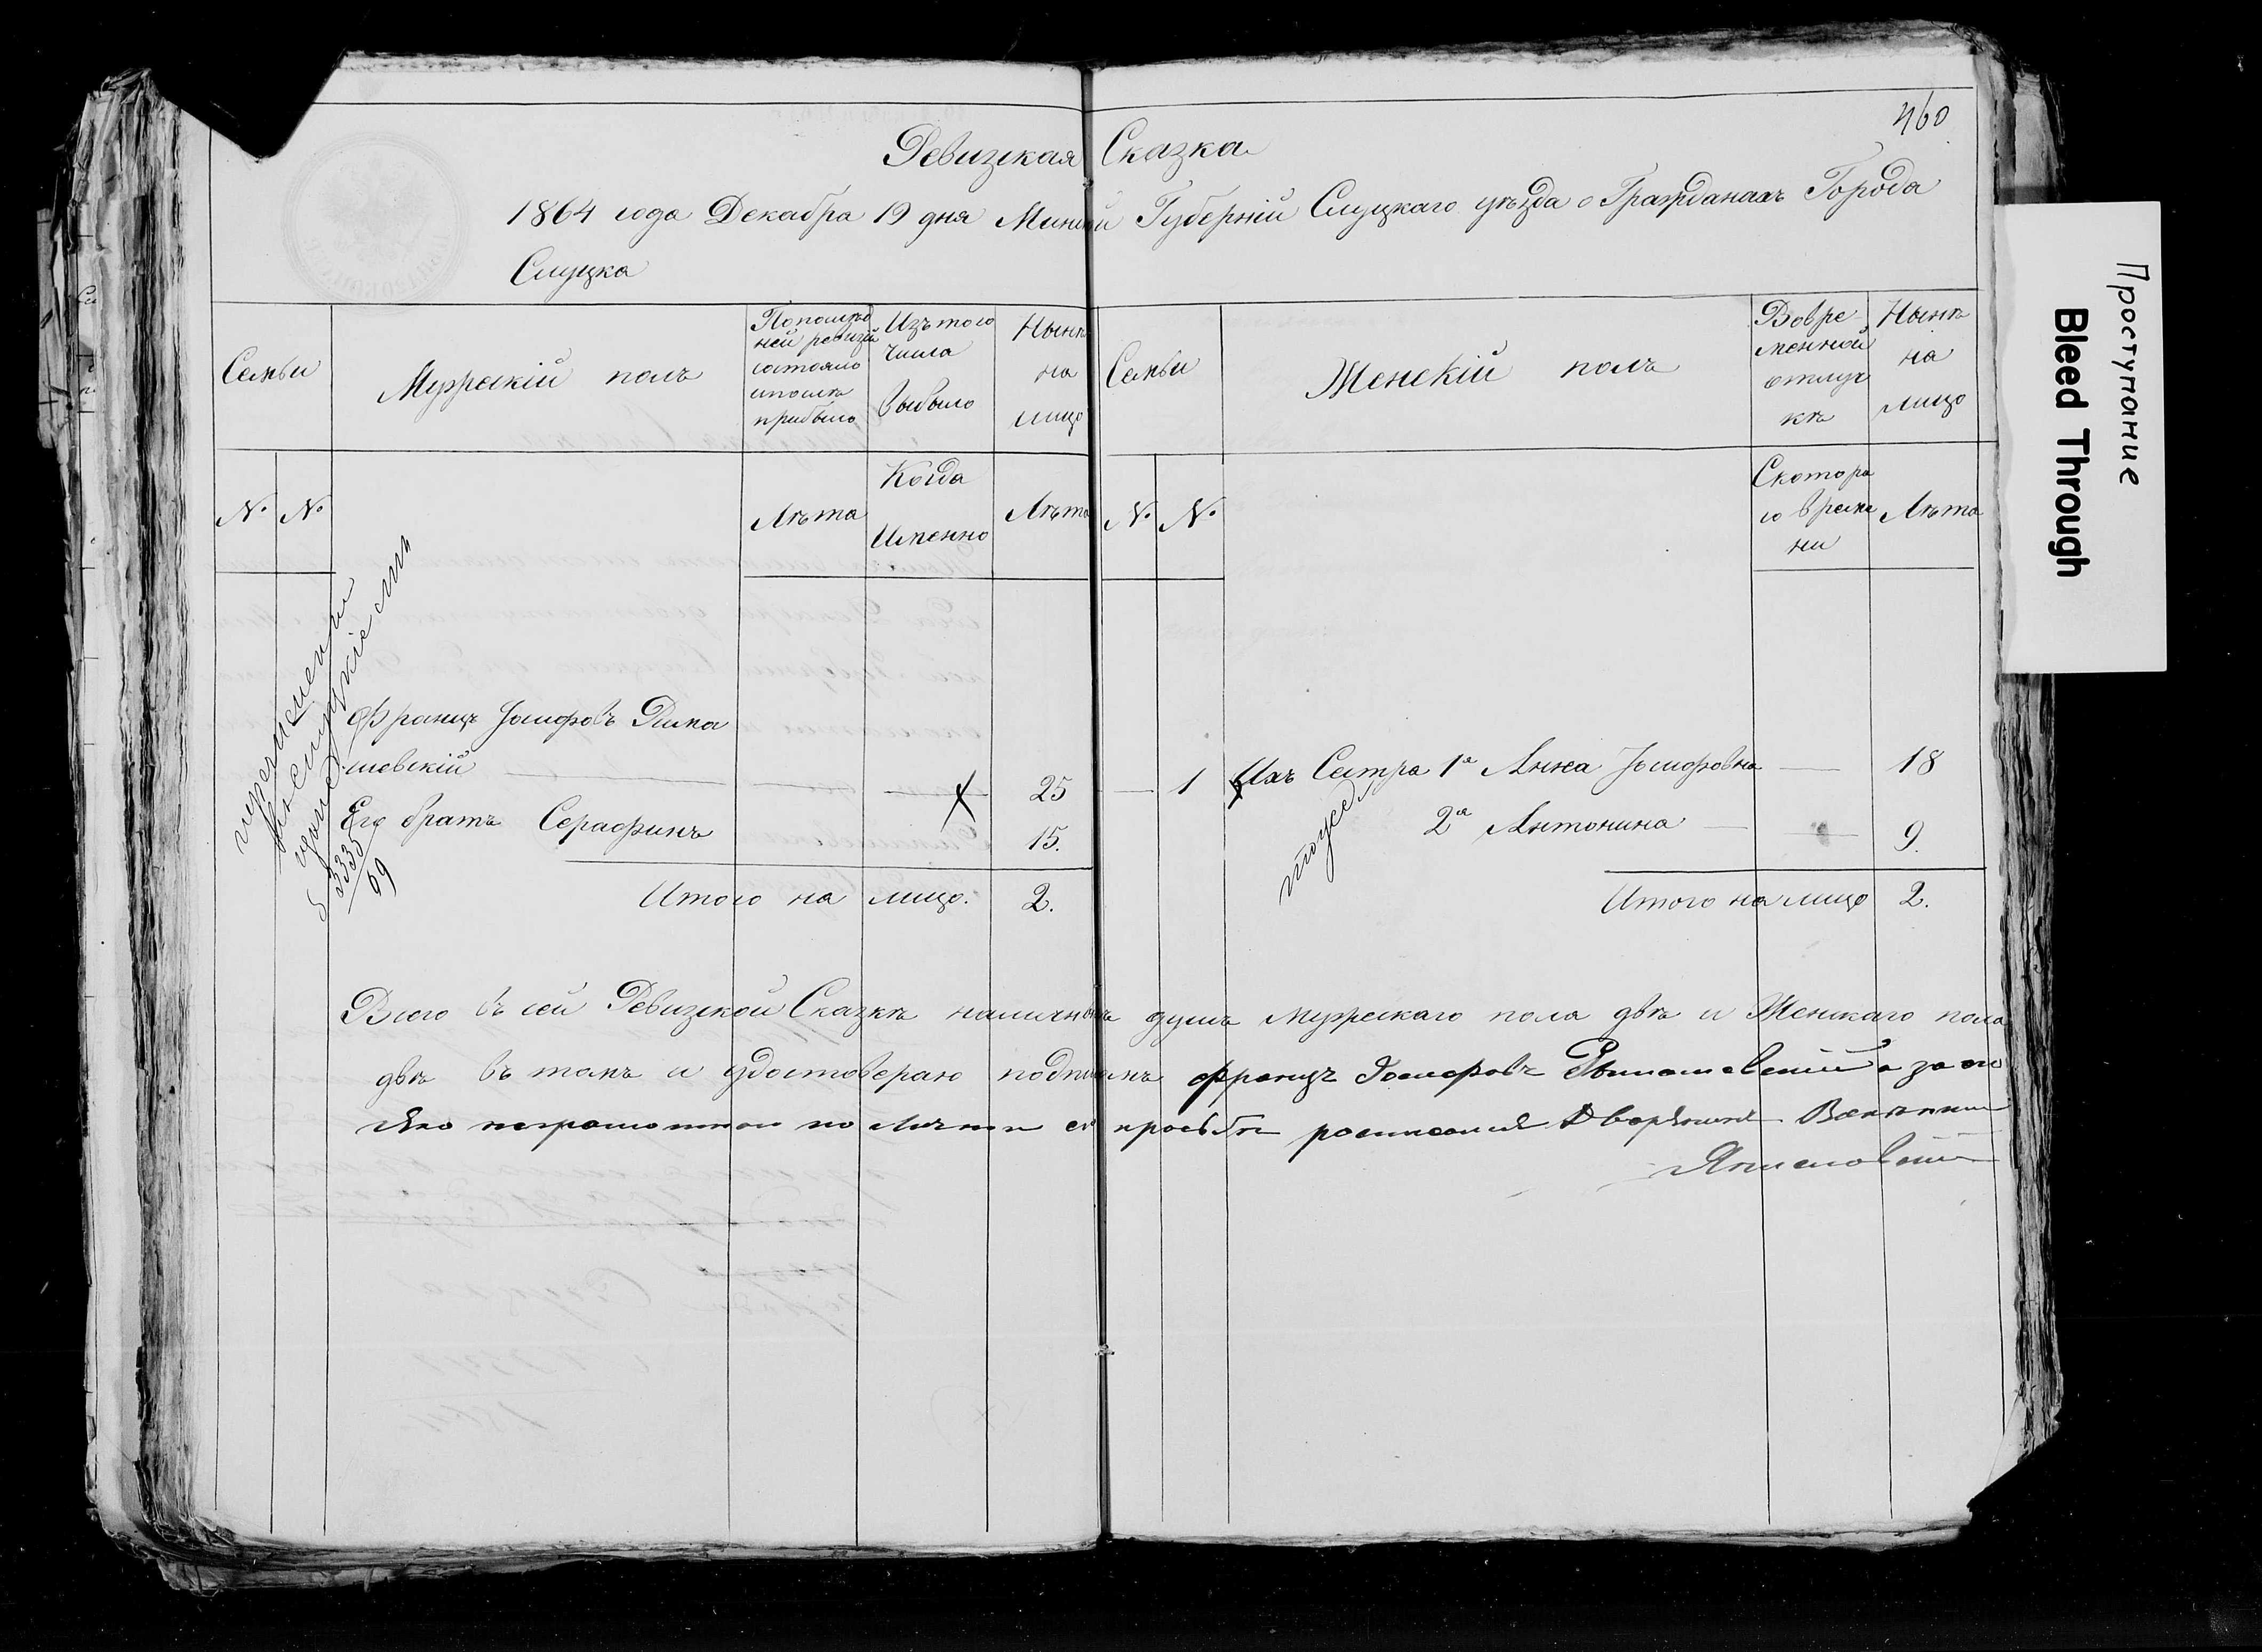 460
Ревизская Сказка
1864 года Декабря 19 дня Минской Губерніи Слуцкаго уѣзда о Гражданахъ Города
Слуцка
Семьи
Мужескій полъ
По последней ревизіи состояло и после прибыло
Изъ того числа выбыло
Нынѣ на лицо
Семьи
Женскій полъ
Во временной отлучкѣ
Нынѣ на лицо
№ №
Лѣта
Когда Именно
Лѣта
№ №
С котораго времени
Лѣта
перечислены
въ слуцкіе
3335
69
Францъ Іосифовъ Рима
шевскій 25
Его братъ Серафинъ 15.
Итого на лицо. 2.
1 Ихъ Сестра 1я Анна Іосифовна — 18
2я Антонина — 9.
Итого на лицо 2.
Всего въ сей Ревизской Сказкѣ наличныхъ душъ мужескаго пола двѣ и Женскаго пола
двѣ въ томъ и удостоверяю подписомъ Францъ Іосифовъ Рымашевскій а за его
яко неграмотнаго по личной его просьбѣ росписался Дворянинъ
Проступание
Bleed Through